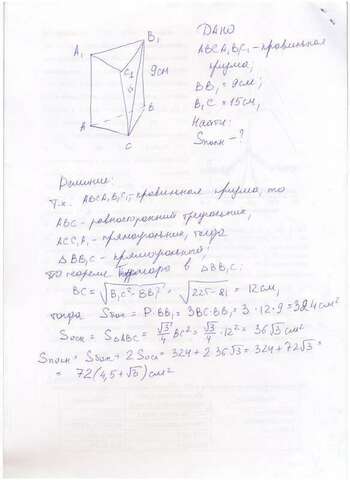 A₁
B₁
C₁
9см
B
A
C
Дано
ABCA₁B₁C₁ - правильная
призма;
BB₁ = 9см;
B₁C = 15см,
Найти:
Sполн - ?
Решение:
Т.к. ABCA₁B₁C₁ - правильная призма, то
ABC - равносторонний треугольник,
ACC₁A₁ - прямоугольник, тогда
△BB₁C - прямоугольный;
По теореме Пифагора в △BB₁C:
BC = √(B₁C² - BB₁²) = √(225 - 81) = 12см,
тогда Sбок = P · BB₁ = 3BC·BB₁ = 3 · 12 · 9 = 324 см²
Sосн = S△ABC = √3/4 BC² = √3/4 · 12² = 36√3 см²
Sполн = Sбок + 2 Sосн = 324 + 2·36√3 = 324 + 72√3 =
= 72(4,5 + √3) см²